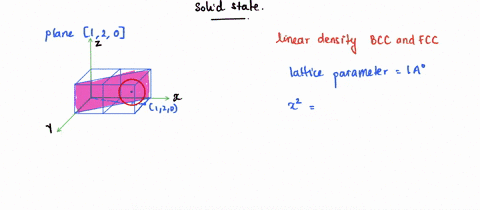 Solid state.
plane [1,2,0]
z
x
y
(1,2,0)
linear density BCC and FCC
lattice parameter = 1A°
x² =